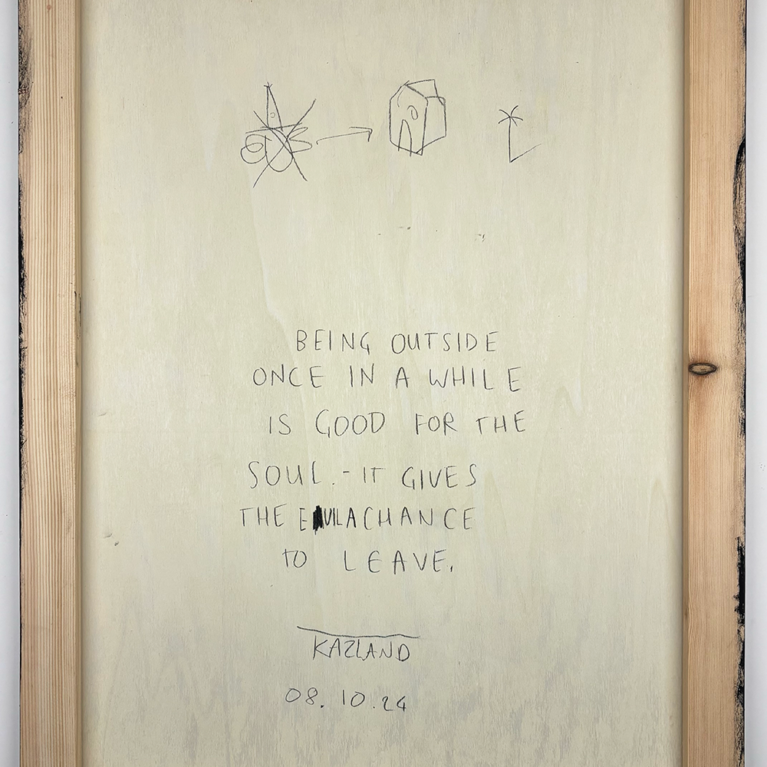 BEING OUTSIDE
ONCE IN A WHILE
IS GOOD FOR THE
SOUL.-IT GIVES
THE EVIL A CHANCE
TO LEAVE.
KAZLAND
08.10.24